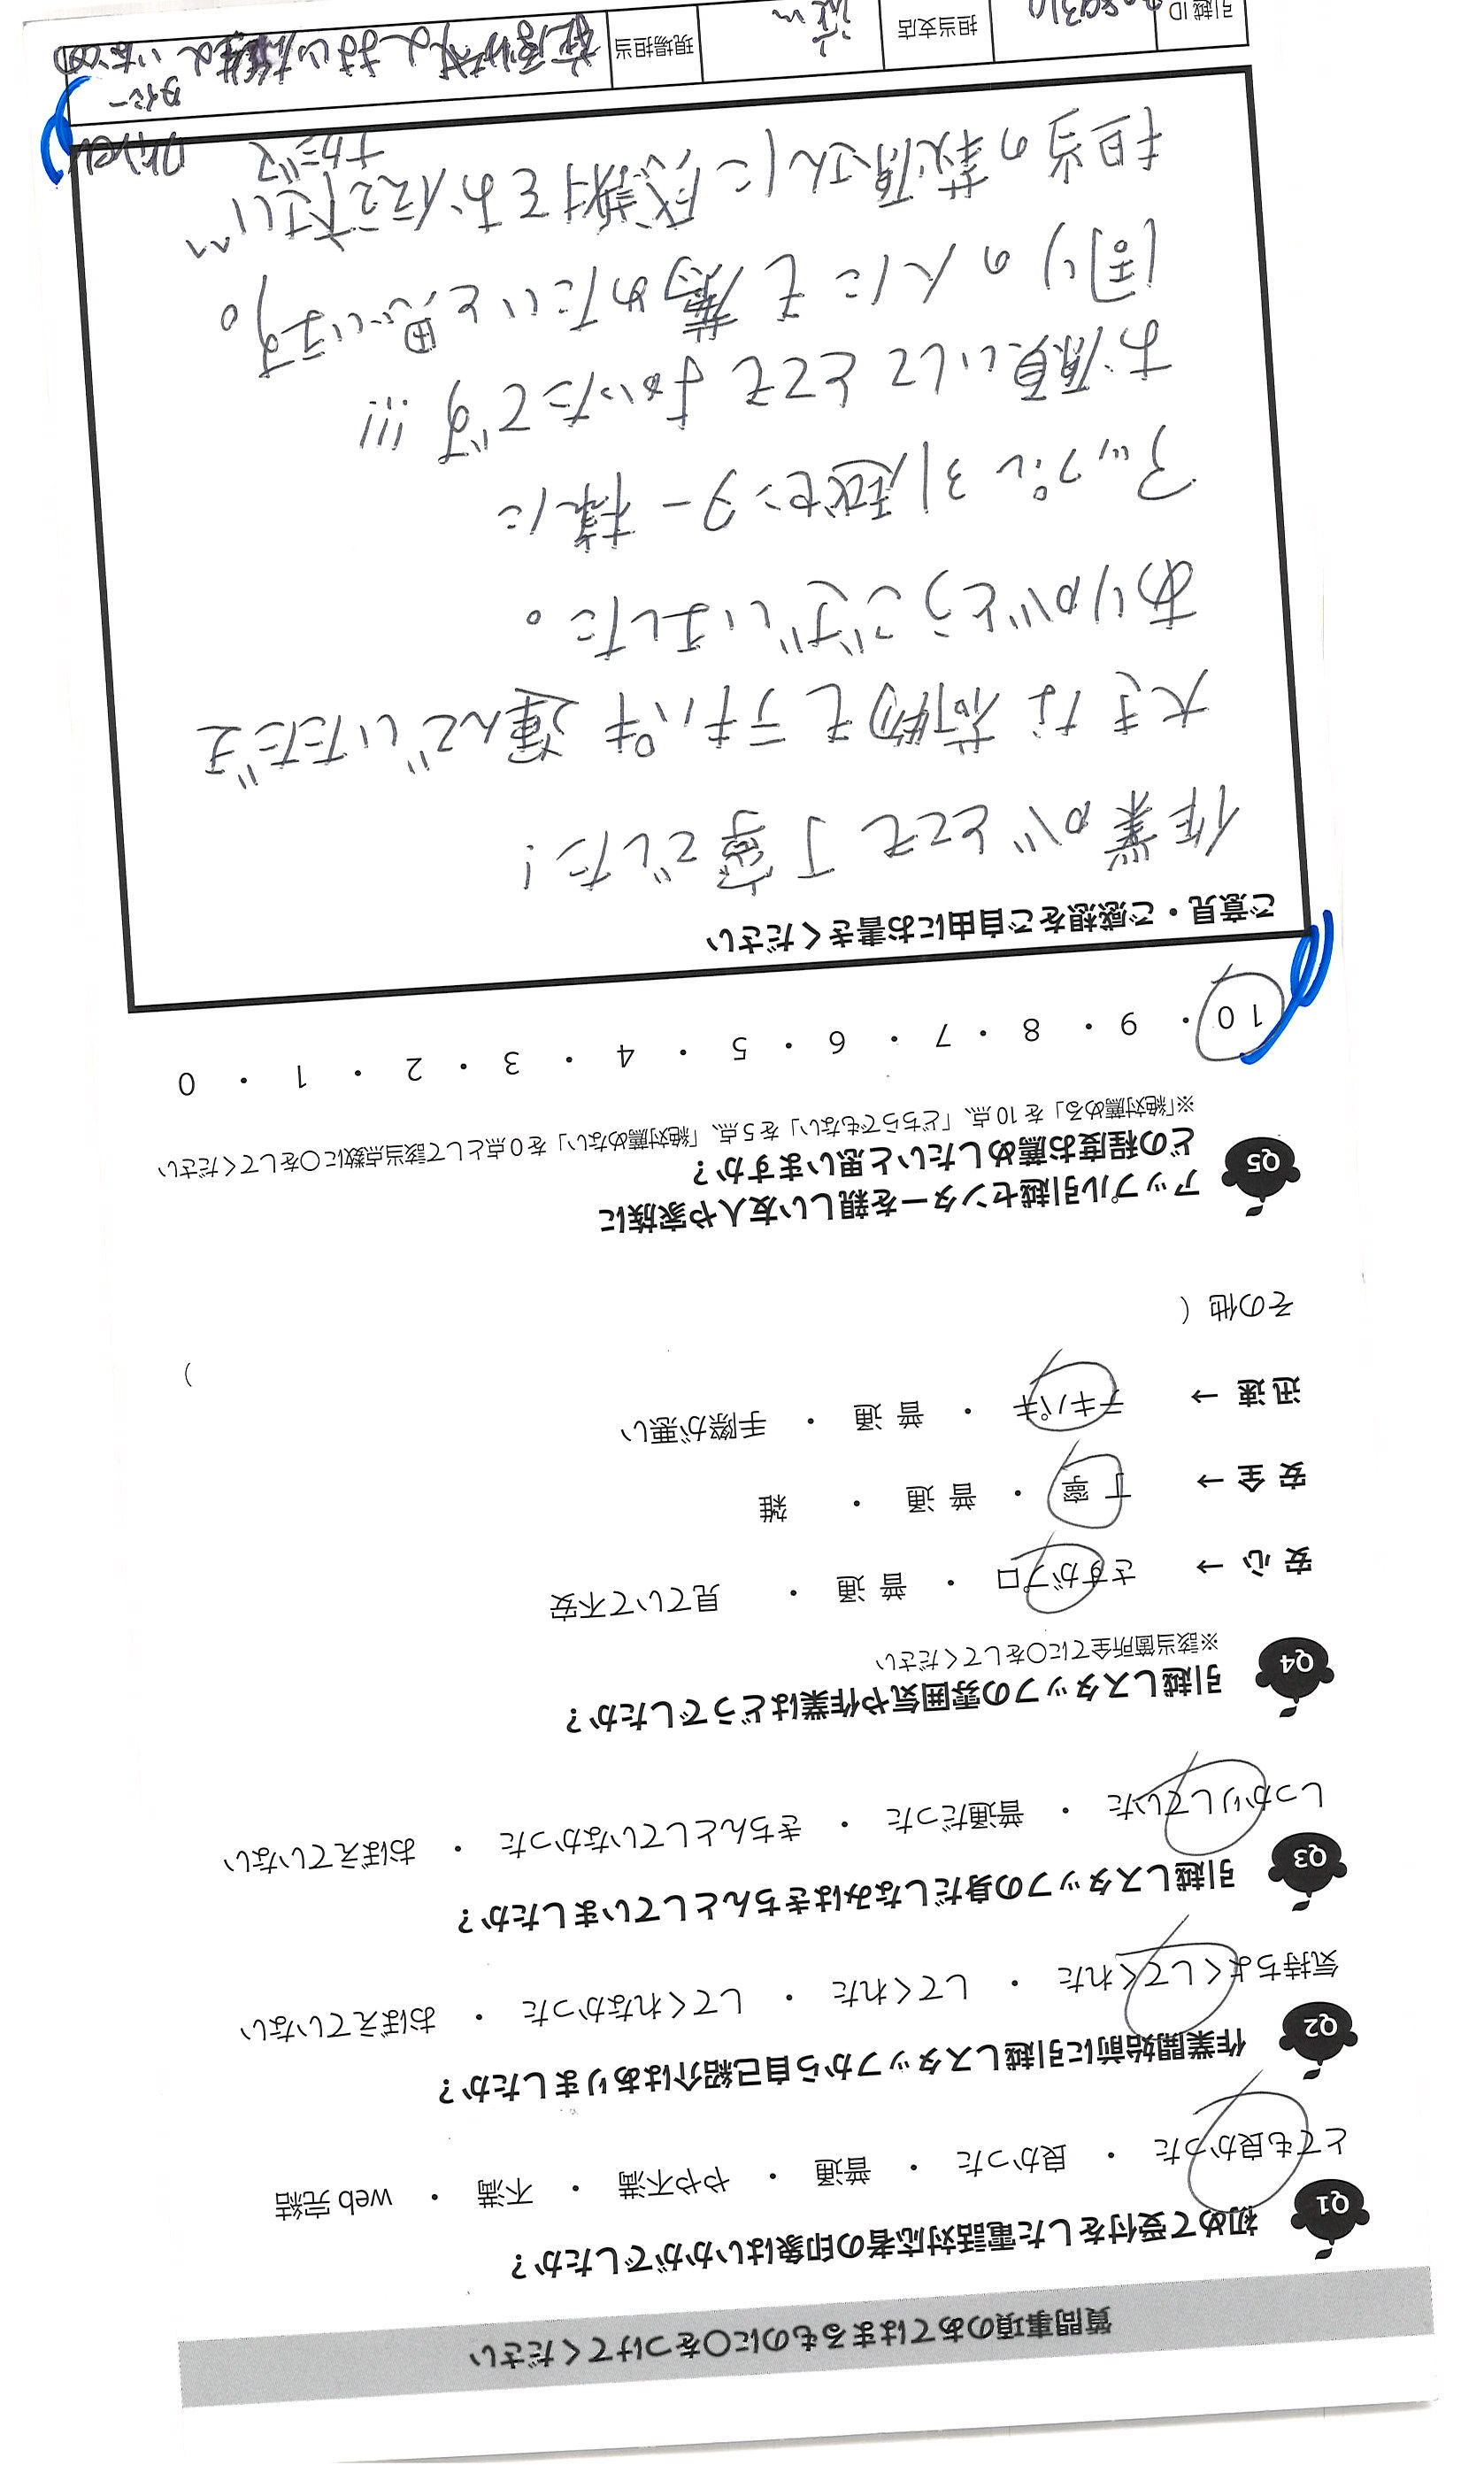 質問事項のあてはまるものに〇をつけてください
Q1 初めて受付をした電話対応者の印象はいかがでしたか？
とても良かった ・ 良かった ・ 普通 ・ やや不満 ・ 不満 ・ web完結
Q2 作業開始前に引越しスタッフから自己紹介はありましたか？
気持ちよくしてくれた ・ してくれた ・ してくれなかった ・ おぼえていない
Q3 引越しスタッフの身だしなみはきちんとしていましたか？
しっかりしていた ・ 普通だった ・ きちんとしていなかった ・ おぼえていない
Q4 引越しスタッフの雰囲気や作業はどうでしたか？
※該当箇所全てに〇をしてください
安心 → さすがプロ ・ 普通 ・ 見ていて不安
安全 → 丁寧 ・ 普通 ・ 雑
迅速 → テキパキ ・ 普通 ・ 手際が悪い
その他 （ ）
Q5 アップル引越センターを親しい友人や家族に
どの程度お薦めしたいと思いますか？
※「絶対薦める」を10点、「どちらでもない」を5点、「絶対薦めない」を0点として該当点数に〇をしてください
10 ・ 9 ・ 8 ・ 7 ・ 6 ・ 5 ・ 4 ・ 3 ・ 2 ・ 1 ・ 0
ご意見・ご感想をご自由にお書きください
作業がとても丁寧でした！
大きな荷物もテキパキ運んでいただき
ありがとうございました。
アップル引越センター様に
お願いしてとてもよかったです!!!
周りの人にも薦めたいと思います。
担当の萩原さんに感謝をお伝え下さい
引越ID
担当支店
現場担当